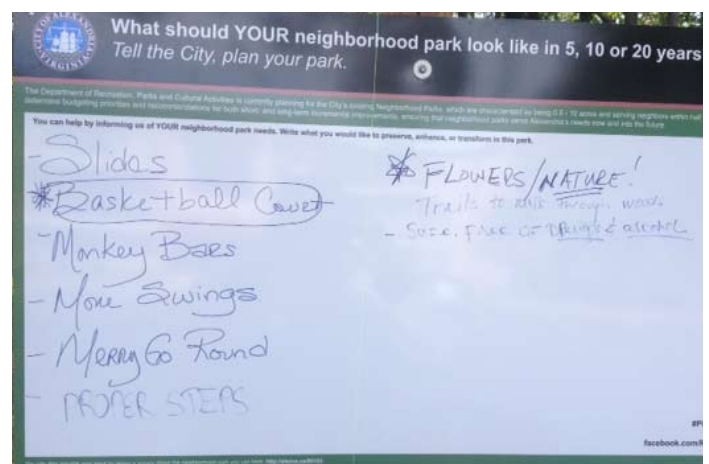 CITY OF ALEXANDRIA
VIRGINIA
What should YOUR neighborhood park look like in 5, 10 or 20 years
Tell the City, plan your park.
The Department of Recreation, Parks and Cultural Activities is currently planning for the City's existing Neighborhood Parks, which are characterized as being 0.5 - 10 acres and serving neighbors within half
determine budgeting priorities and recommendations for both short and long-term incremental improvements, ensuring that neighborhood parks serve Alexandria's needs now and into the future.
You can help by informing us of YOUR neighborhood park needs. Write what you would like to preserve, enhance, or transform in this park.
- Slides
* Basketball Court
- Monkey Bars
- More Swings
- Merry Go Round
- PROPER STEPS
* FLOWERS/NATURE!
Trails to walk through woods
- Safe, free of Drugs & alcohol
facebook.com/